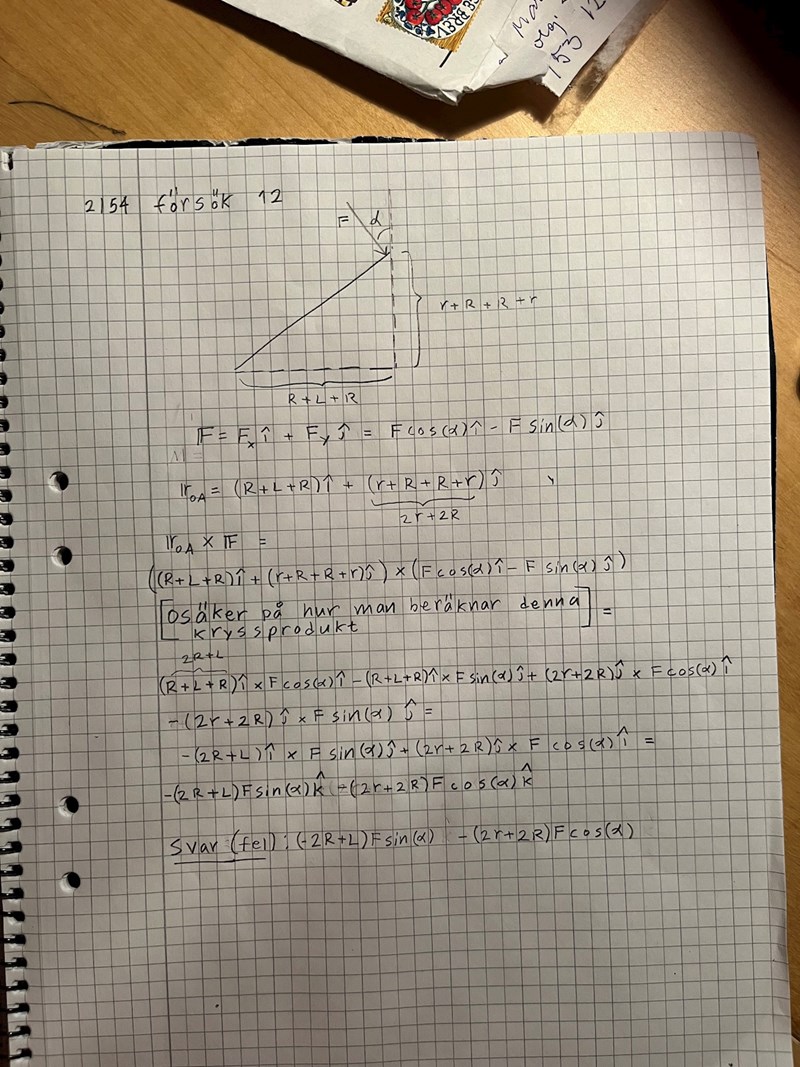 Ma
orig.
153 12
1388
2154 försök 12
F α
r+R+R+r
R+L+R
𝔽 = Fₓ î + Fᵧ ĵ = F cos(α) î - F sin(α) ĵ
𝕣_OA = (R+L+R) î + (r+R+R+r) ĵ
2r+2R
𝕣_OA × 𝔽 =
((R+L+R) î + (r+R+R+r) ĵ) × (F cos(α) î - F sin(α) ĵ)
[osäker på hur man beräknar denna
kryssprodukt] =
2R+L
(R+L+R) î × F cos(α) î - (R+L+R) î × F sin(α) ĵ + (2r+2R) ĵ × F cos(α) î
-(2r+2R) ĵ × F sin(α) ĵ =
-(2R+L) î × F sin(α) ĵ + (2r+2R) ĵ × F cos(α) î =
-(2R+L) F sin(α) k̂ - (2r+2R) F cos(α) k̂
Svar (fel): (-2R+L) F sin(α) - (2r+2R) F cos(α)